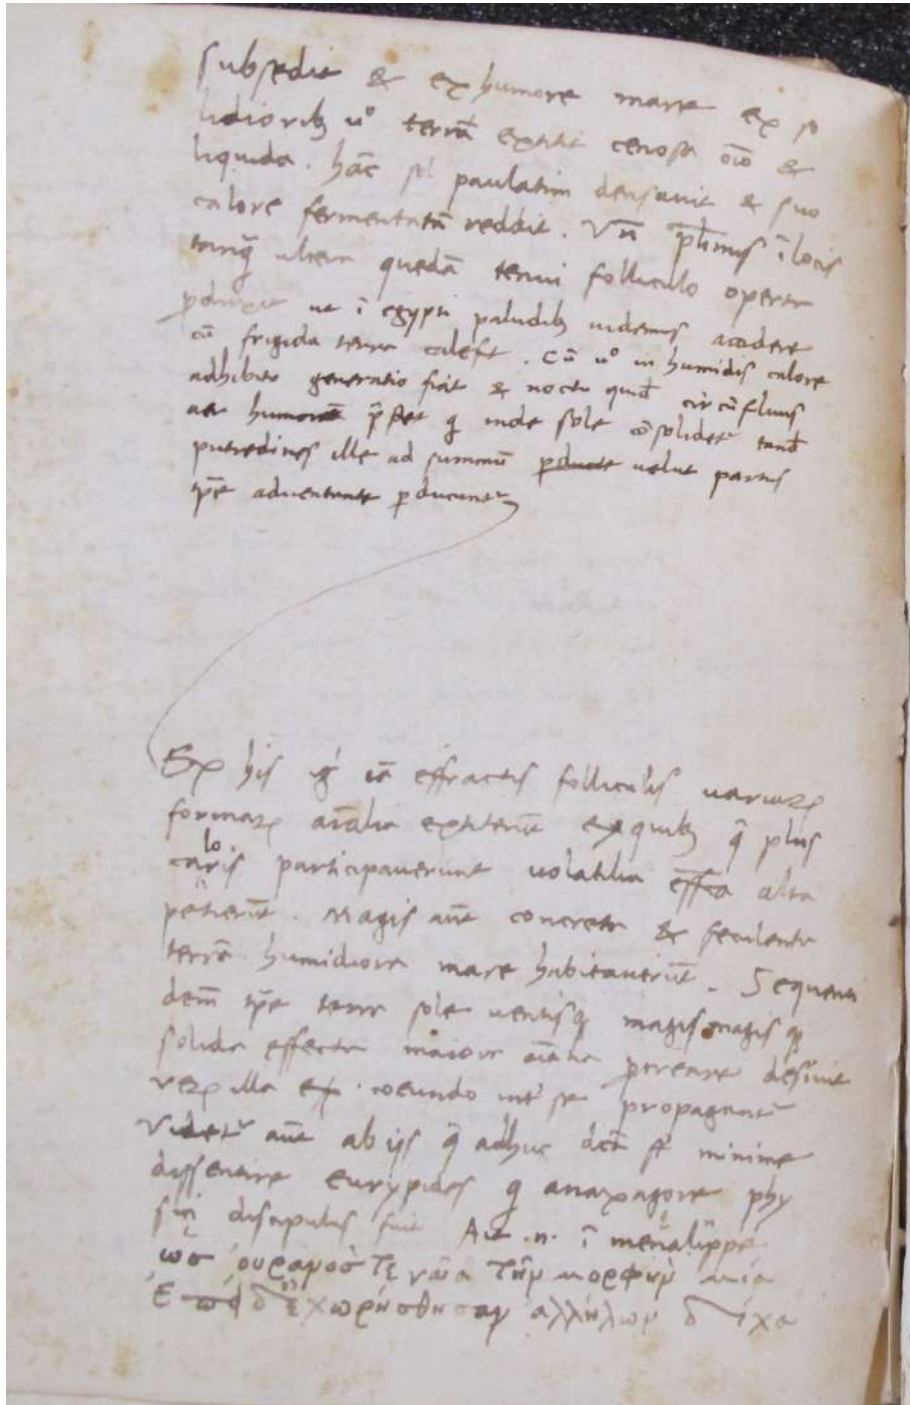 subsedit & ex humore mare ex so
lidiorib; u° terrā extitit cenosa oīo &
liquida. hāc sol paulatim densavit & suo
calore fermentatā reddit. Vn̄ p̄limis ī locis
tanq̄ ulcera quedā tenui folliculo operta
produxit ut ī egypti paludib; uidemus accidere
cū frigida terra calefit. Cū u° in humidis calore
adhibito generatio fiat & noctu quid̄ circūfluus
aer humorē p̄stet q inde sole cōsolidetr tand̄
putredines ille ad summū ꝑducte uelut partus
tp̄e adventante ꝑducuntr
Ex his igr iā effractis folliculis variaꝝ
formaꝝ aīalia extiterūt ex quib; q̄ plus
caloris participaverunt volatilia eff̄ca alta
petierūt. Magis aūt concreta & feculenta
terrā humidiora mare habitaverūt. Sequenti
dem̄ tp̄e terra sole ventisq; magis magisq;
solida effecta maiora aīalia ꝓcreare desinit
veꝝ illa ex coeundo intr se propagantr
Videtr aūt ab ijs q̄ adhuc dc̄ta st̄ minime
dissentire Eurypides q anaxagore phy
sici discipulus fuit Ait .n. ī menalippe
ωσ ουρανοσ τε γαῖα τ ἦν μορφὴ μία
Επεὶ δ εχωρίσθησαν αλλήλων δίχα